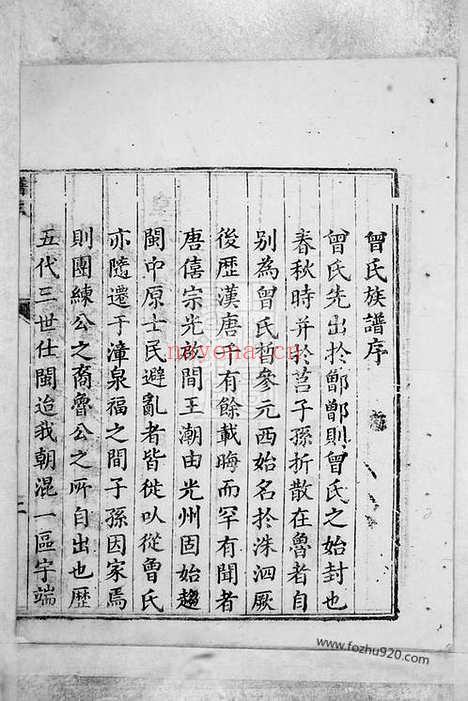 曾氏族譜序
曾氏先出於鄫鄫則曾氏之始封也
春秋時并於莒子孫折散在魯者自
別為曾氏晳參元西始名於洙泗厥
後歷漢唐千有餘載晦而罕有聞者
唐僖宗光啟間王潮由光州固始趨
閩中原士民避亂者皆徙以從曾氏
亦隨遷于漳泉福之間子孫因家焉
則團練公之裔魯公之所自出也歷
五代三世仕閩迨我朝混一區宇端
nayona.cn
www.fozhu920.com